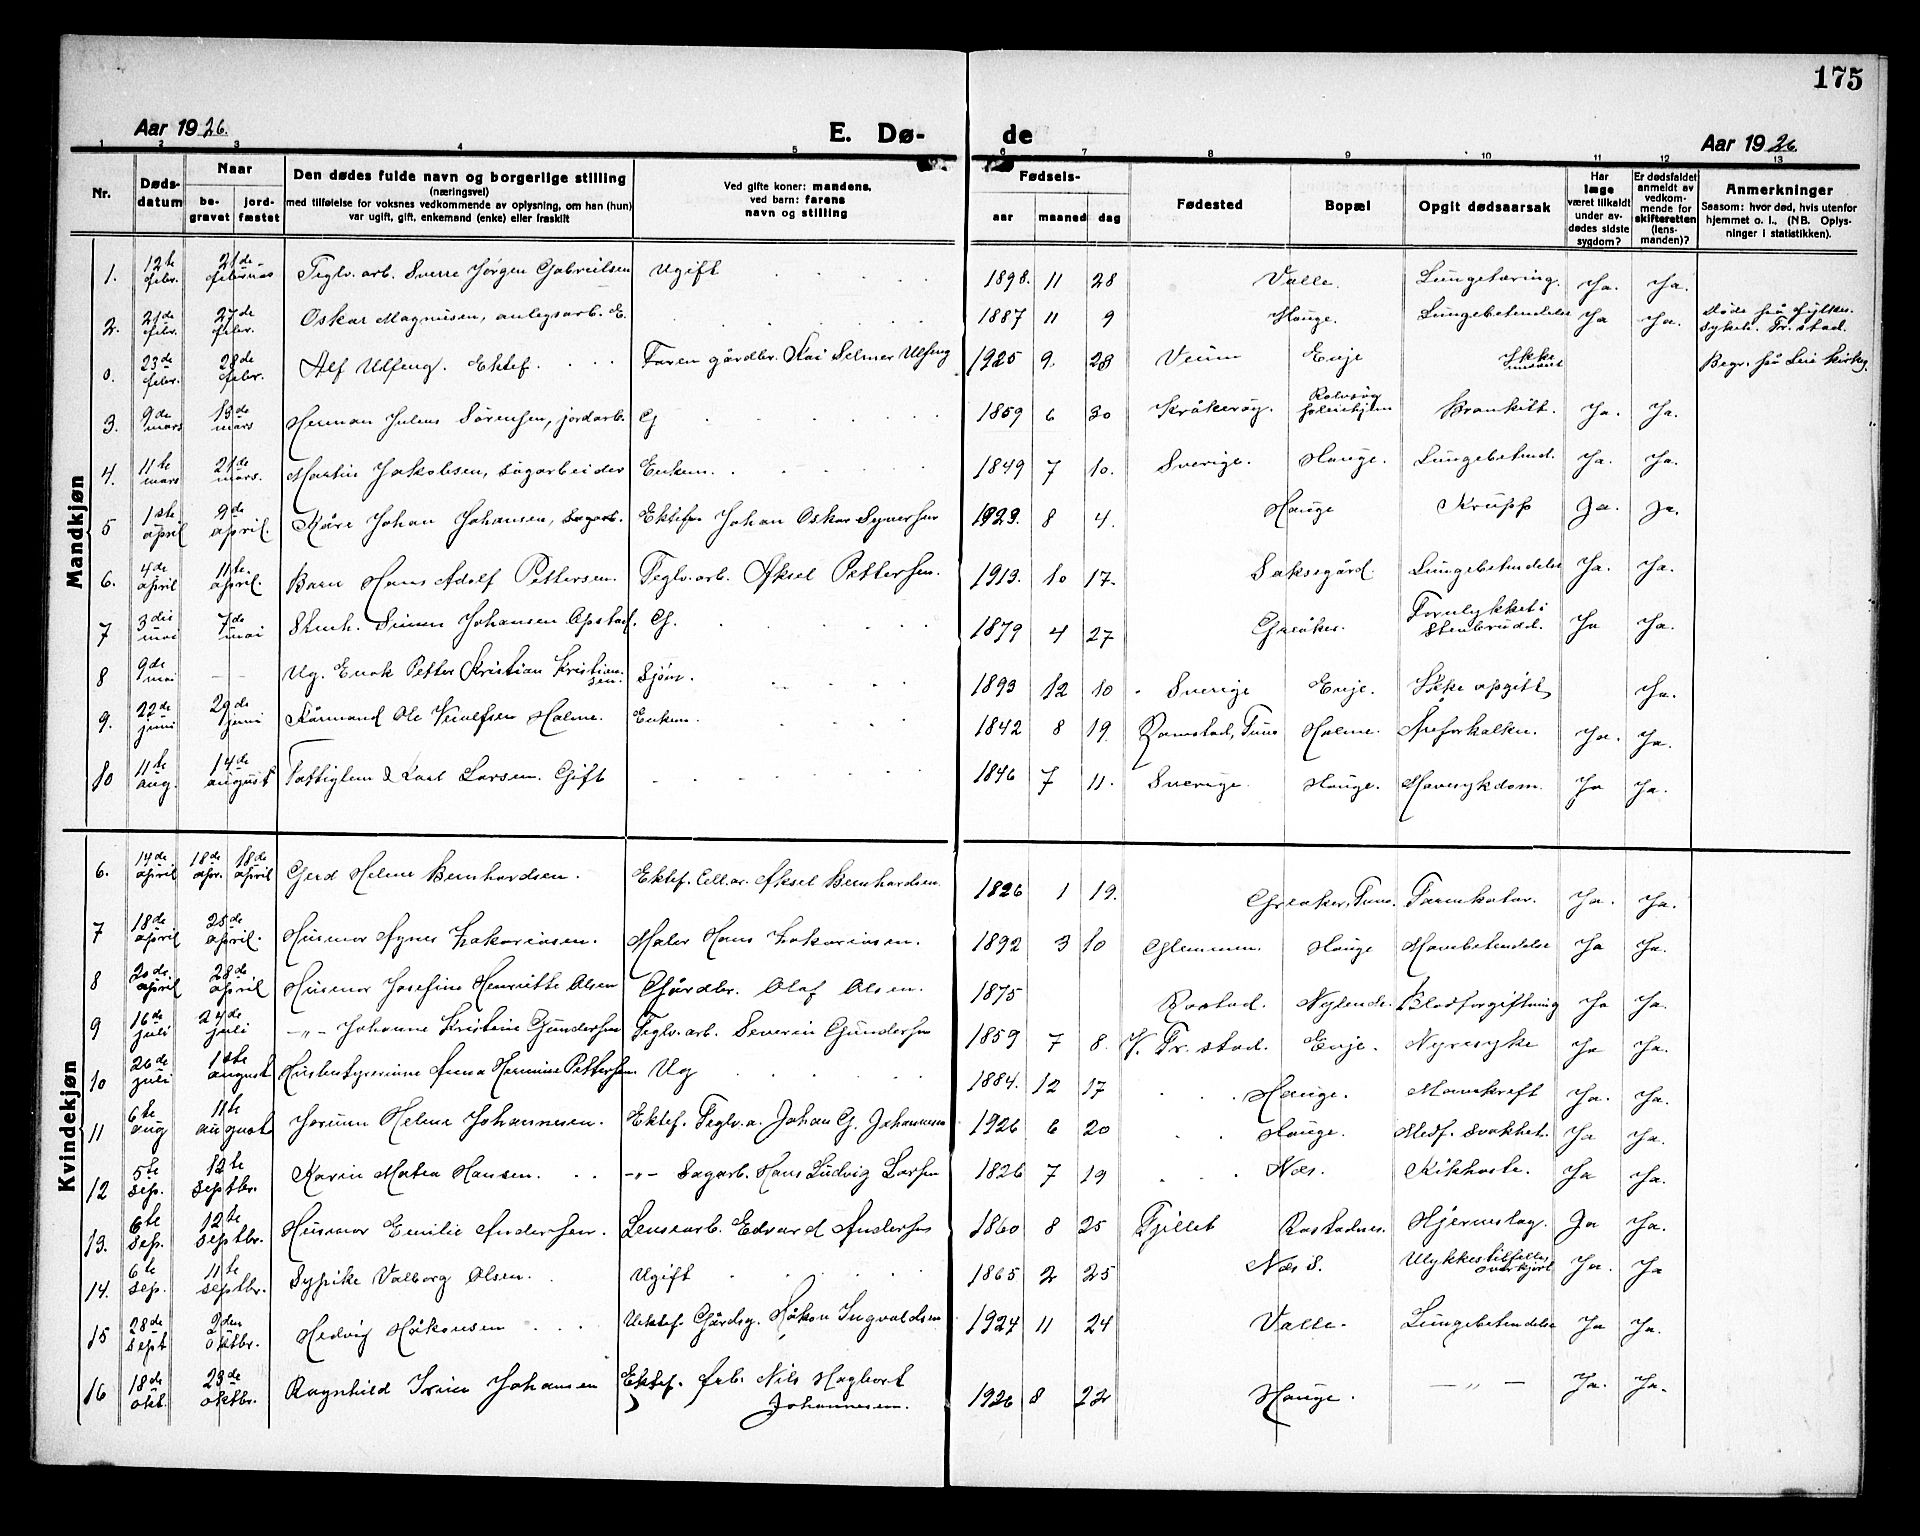 175
Aar 1926.
E. Dø-
de
Aar 1926.
1 2 3 4 5 6 7 8 9 10 11 12 13
Nr.
Døds-
datum
Naar
be-
gravet
jord-
fæstet
Den dødes fulde navn og borgerlige stilling
(næringsvei)
med tilføielse for voksnes vedkommende av oplysning, om han (hun)
var ugift, gift, enkemand (enke) eller fraskilt
Ved gifte koner: mandens,
ved barn: farens
navn og stilling
Fødsels-
aar maaned dag
Fødested
Bopæl
Opgit dødsaarsak
Har
læge
været tilkaldt
under av-
dødes sidste
sygdom?
Er dødsfaldet
anmeldt av
vedkom-
mende for
skifteretten
(lens-
manden)?
Anmerkninger
Saasom: hvor død, hvis utenfor
hjemmet o. l., (NB. Oplys-
ninger i statistikken).
Mandkjøn
1. 12te febr. 21de februar Teglv. arb. Sverre Jørgen Gabrielsen Ugift 1898. 11 28 Valle. Lungetæring. Ja. Ja.
2. 21de febr. 27de febr. Oskar Magnusen, anlegsarb. E. 1887 11 9 Hauge. Lungebetendelse Ja Ja. Døde på Fylkes-
sykeh. Fr.stad.
0. 23de febr. 28de febr. Alf Ulfeng. Ektef. Faren gårdbr. Kai Selmer Ulfeng 1925 9. 28 Veum Enje Ikke Begr. på Leie kirkeg.
3. 9de mars 13de mars Herman Julius Sørensen, jordarb. G 1859 6 30 Kråkerøy. Rolvsøy Bronkitt. Ja. Ja.
4. 11te mars 21de mars. Martin Jakobsen, sagarbeider Enkem. 1849 7 10. Sverige. Hauge. Lungebetend. Ja. Ja.
5 1ste april 9de april. Kåre Johan Johansen, Sagarb. Ektef. Johan Oskar 1923. 8 4. Hauge Krupp Ja. Ja.
6. 4de april 11te april. Barn Hans Adolf Pettersen. Teglv. arb. Aksel Pettersen. 1913. 10 17. Saksegård. Lungebetendelse Ja. Ja.
7 3die mai 7de mai Stenh. Simen Johansen Opstad. G. 1879 4 27 Greåker. Forulykket i
Stenbrudd. Ja Ja.
8 9de mai — — Ug. Enok Petter Kristian Kristian-
sen. Sjøm. 1893 12 10 Sverige Enje. Ikke opgitt Ja.
9. 22de juni 29de juni Kårmand Ole Holme. Enkem. 1842 8 19. Ramstad, Tune Holme. Åreforkalkn. Ja. Ja.
10 11te aug. 14de august Fattiglem Karl Larsen. Gift 1846 7 11. Sverige. Hauge. Mavesykdom. Ja Ja.
Kvindekjøn
6. 14de april 18de apr. 18de april Gerd Helene Bernhardsen. Ektef. Cell.ar. Aksel Bernhardsen. 1826 1 19. Greaker, Tune. Tarmkatar. Ja. Ja.
7 18de april 25de april. Husmor Agnes Zakariasen. Maler Hans Zakariasen. 1892 3 10 Glemmen. Hauge Mavebetendelse Ja Ja.
8 20de april 28de april Husmor Josefine Henriette Olsen Gårdbr. Olaf Olsen. 1875 Rostad. Nylende. Blodforgiftning Ja Ja.
9 16de juli 24de juli —„— Johanne Kristine Gundersen Teglv. arb. Severin Gundersen 1859 7 8. V. Fr.stad. Enje. Nyresyke Ja Ja.
10 26de juli 1ste august Husbestyrerinne Anna Hermine Pettersen. Ug 1884. 12 17 Hauge. Mavekreft Ja. Ja.
11 6te aug 11te august Jorunn Helene Johannesen. Ektef. Teglv.a. Johan G. Johannesen 1926 6 20 Hauge. Medf. svakhet. Ja Ja.
12 5te sep. 12te septbr. Karin Matea Hansen. —„— Sagarb. Hans Ludvig Larsen 1826 7 19 Næs. Kikhoste. Ja Ja.
13. 6te sep. 12te septbr. Husmor Emilie Andersen. Lensearb. Edvard Andersen 1860 8 25 Fjillet Rostadnes. Hjerneslag. Ja Ja.
14. 6te sep. 11te septbr. Sypike Valborg Olsen. Ugift 1865 2 25 Næss. Ulykkestilfelle,
overkjørt Ja. Ja
15 28de sept 2den oktbr. Hedvig Håkonsen Uektef. Gårdsg. Håkon Ingvaldsen 1924 11 24 Valle. Lungebetendelse Ja Ja.
16 18de okt. 23de oktbr. Ragnhild Irene Johansen Ektef. Arb. Nils Hagbart
Johannesen. 1926 8 22 Hauge. — „ — Ja. Ja.